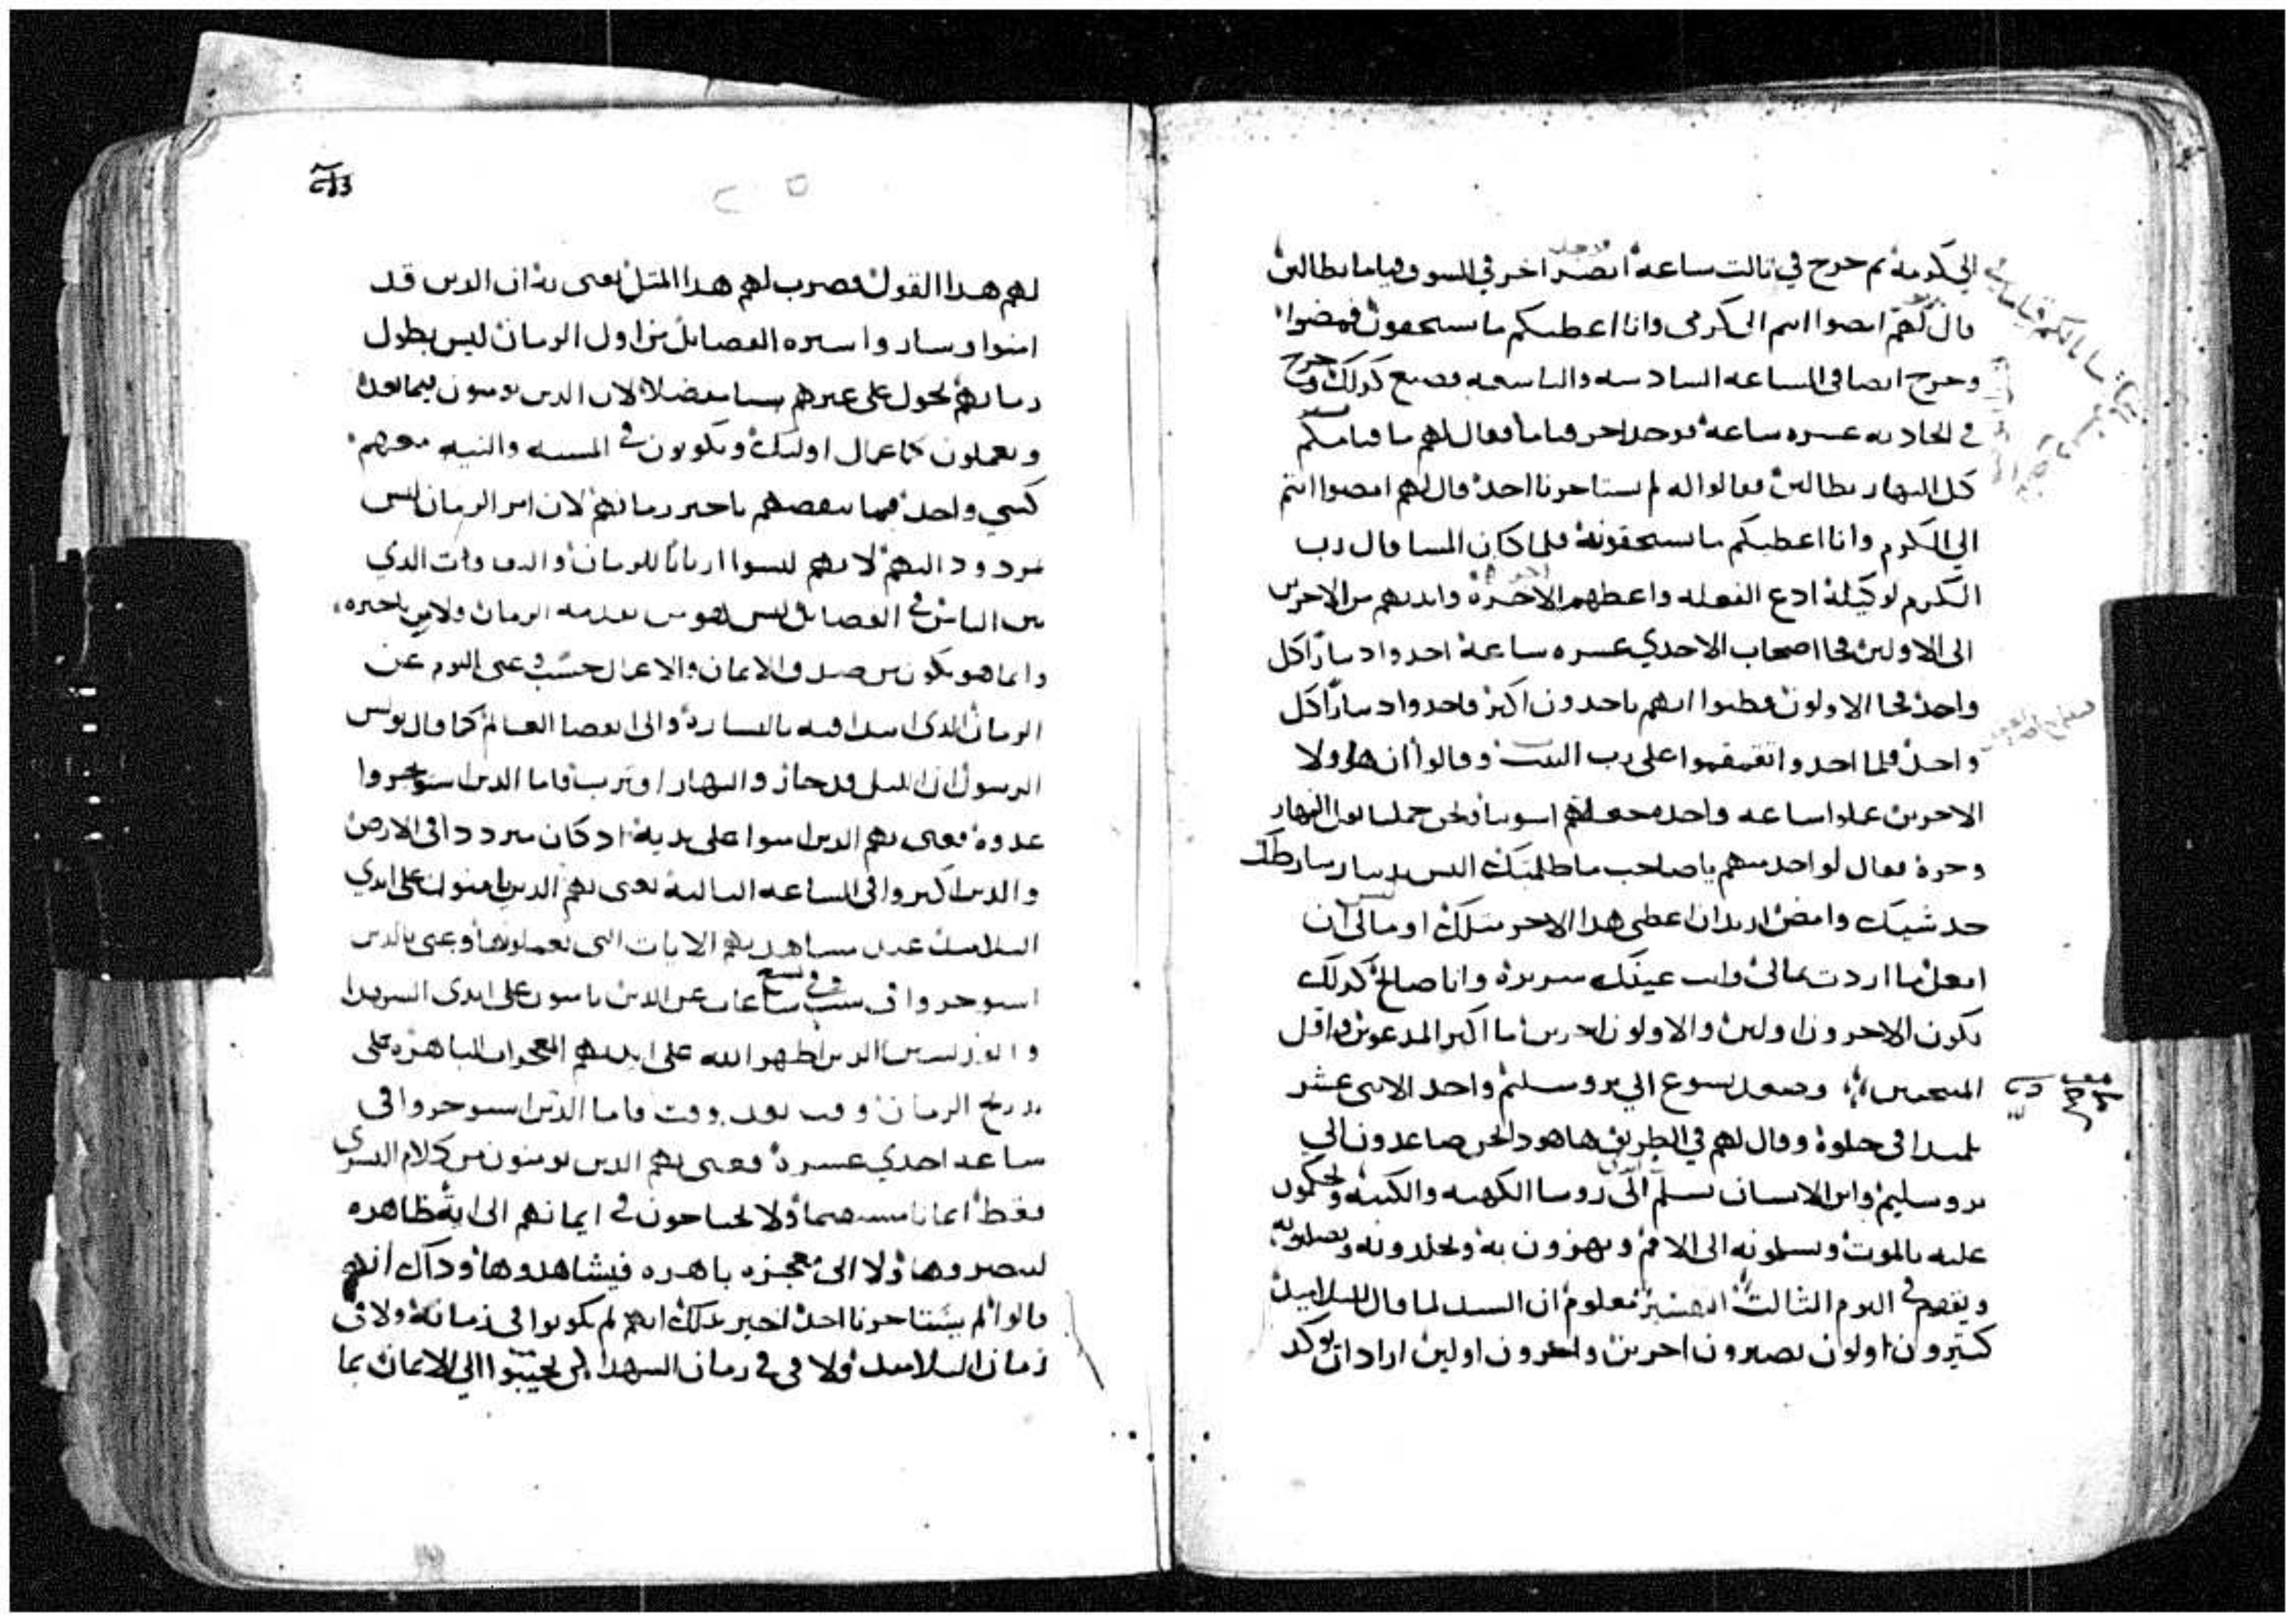 الي كرمه ثم خرج في ثالث ساعة ابصر اخر في السوق قياما بطالين
قال لهم امضوا انتم الى كرمى وانا اعطيكم ما تستحقون فمضوا
وخرج ايضا في الساعه السادسه والتاسعه فصنع كذلك وخرج
في الحاديه عشره ساعة فوجد اخر قياما فقال لهم ما قيامكم
كل النهار بطالين فقالوا له لم يستاجرنا احد قال لهم امضوا انتم
الي الكرم وانا اعطيكم ما تستحقونه فلما كان المسا قال رب
الكرم لوكيله ادع الفعله واعطهم الاجرة وابدبهم من الاخرين
الى الاولين فجا اصحاب الاحدي عشره ساعة اخدوا دينارا كل
واحد فجا الاولون فظنوا انهم ياخدون اكثر فاخدوا دينارا كل
واحد فلما اخدوا تقمقموا على رب البيت وقالوا ان هاولا
الاخرين عملوا ساعه واحده جعلتهم اسوتنا ونحن حملنا ثقل النهار
وحره فقال لواحد منهم يا صاحب ما ظلمتك اليس بدينار شارطتك
خد شيك وامض اريد ان اعطى هدا الاخر مثلك او ما لى ان
افعل ما اردت بمالى وانت عينك شريرة وانا صالح كدلك
يكون الاخرون اولين والاولون اخرين ما اكثر المدعوين واقل
المنتجبين وصعد يسوع الي يروسليم واخد الاثنى عشر
تلميدا في خلوة وقال لهم في الطريق ها هودا نحن صاعدون الي
يروسليم وابن الانسان يسلم الى روسا الكهنه والكتبه ويحكمون
عليه بالموت ويسلمونه الى الامم ويهزون به ويجلدونه ويصلبونه
ويقوم في اليوم الثالث التفسير معلوم ان السيد لما قال للتلاميد
كتيرون اولون يصيرون اخرين واخرون اولين اراد ان يوكد
لهم هدا القول فضرب لهم هدا المتل يعنى به ان الدين قد
امنوا وساروا سيره الفضايل من اول الزمان ليس بطول
زمانهم نحول على غيرهم شيا مفضلا لان الدين يومنون فيما بعد
ويعملون كاعمال اوليك ويكونون في المشيه والنيه معهم
كشي واحد فما ينقصهم تاخير زمانهم لان امر الزمان ليس
مردود اليهم لانهم ليسوا اربابا للزمان والتفاوت الدي
بين الناس في الفضايل ليس هو من تقدمه الزمان ولا من تاخيره
وانما هو يكون من صدق الايمان والاعمال حسب وعنى اليوم عن
الزمان الدى ابتدا فيه بالبشارة والى انقضا العالم كما قال بولس
الرسول ان الليل قد جاز والنهار اقترب فاما الدين استوجروا
غدوة فعنى بهم الدين امنوا على يديه اد كان مترددا في الارض
والدين اكتروا في الساعه التالته يعنى بهم الدين يامنون على ايدي
التلاميد عند مشاهدتهم الايات التى يعملونها وعنى بالدين
استوجروا في ست وفي تسع ساعات عن الدين يامنون على ايدى الشهدا
والقديسين الدين اظهر الله على ايديهم المعجزات الباهرة على
تدريج الزمان وقت بعد وقت فاما الدين استوجروا في
ساعه احدي عشرة فعنى بهم الدين يومنون من كلام البشرى
فقط ايمانا مستقيما ولا يحتاجون في ايمانهم الى اية ظاهره
ليبصروها ولا الى معجزه باهره فيشاهدوها وداك انهم
قالوا لم يستاجرنا احد اخبر بدلك انهم لم يكونوا في زمانه ولا في
زمان التلاميد ولا في زمان الشهدا لكى يجيبوا الي الايمان بما